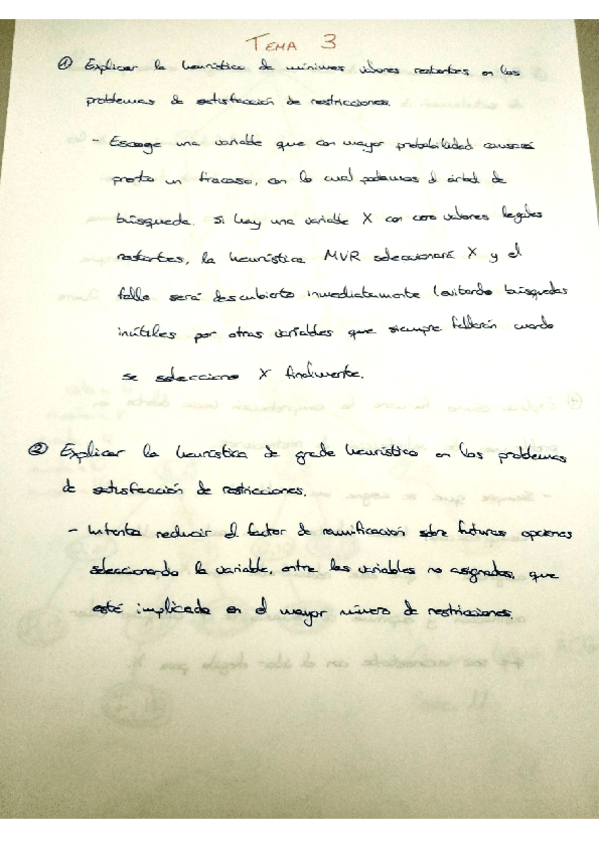 TEMA 3
① Explicar la heurística de mínimos valores restantes en los
problemas de satisfacción de restricciones.
- Escoge una variable que con mayor probabilidad causará
pronto un fracaso, con lo cual podamos el árbol de
búsqueda. Si hay una variable X con cero valores legales
restantes, la heurística MVR seleccionará X y el
fallo será descubierto inmediatamente (evitando búsquedas
inútiles por otras variables que siempre fallarán cuando
se seleccione X finalmente.
② Explicar la heurística de grado heurístico en los problemas
de satisfacción de restricciones.
- Intenta reducir el factor de ramificación sobre futuras opciones
seleccionando la variable, entre las variables no asignadas, que
esté implicada en el mayor número de restricciones.